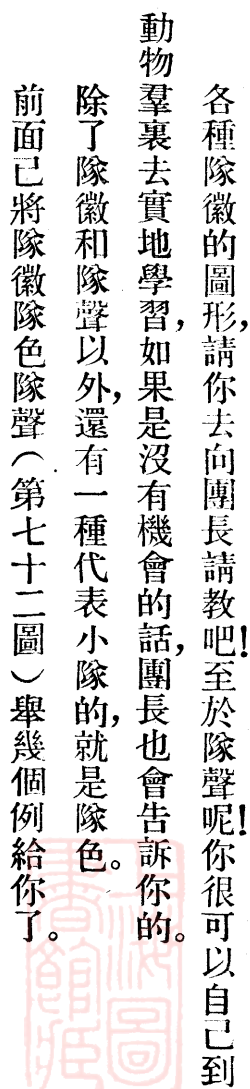 各種隊徽的圖形，請你去向團長請教吧！至於隊聲呢！你很可以自己到
動物羣裏去實地學習，如果是沒有機會的話，團長也會告訴你的。
除了隊徽和隊聲以外，還有一種代表小隊的，就是隊色。
前面已將隊徽隊色隊聲（第七十二圖）舉幾個例給你了。